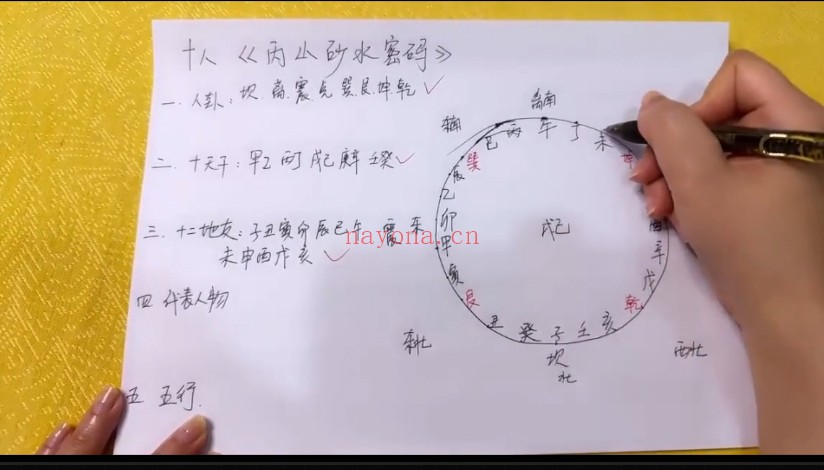 十人《丙山砂水密码》
一.八卦:坎.离.震.兑.巽.艮.坤.乾
二.十天干:甲乙丙丁戊己庚辛壬癸
三.十二地支:子丑寅卯辰巳午
未申酉戌亥
四 代表人物
五 五行.
东南
离南
巽 巳 丙 午 丁 未 坤
辰
乙
卯
甲
寅
艮
丑 癸 子 壬 亥 乾
戌
辛
酉
戊己
震 东
东北
坎
北
西北
nayona.cn